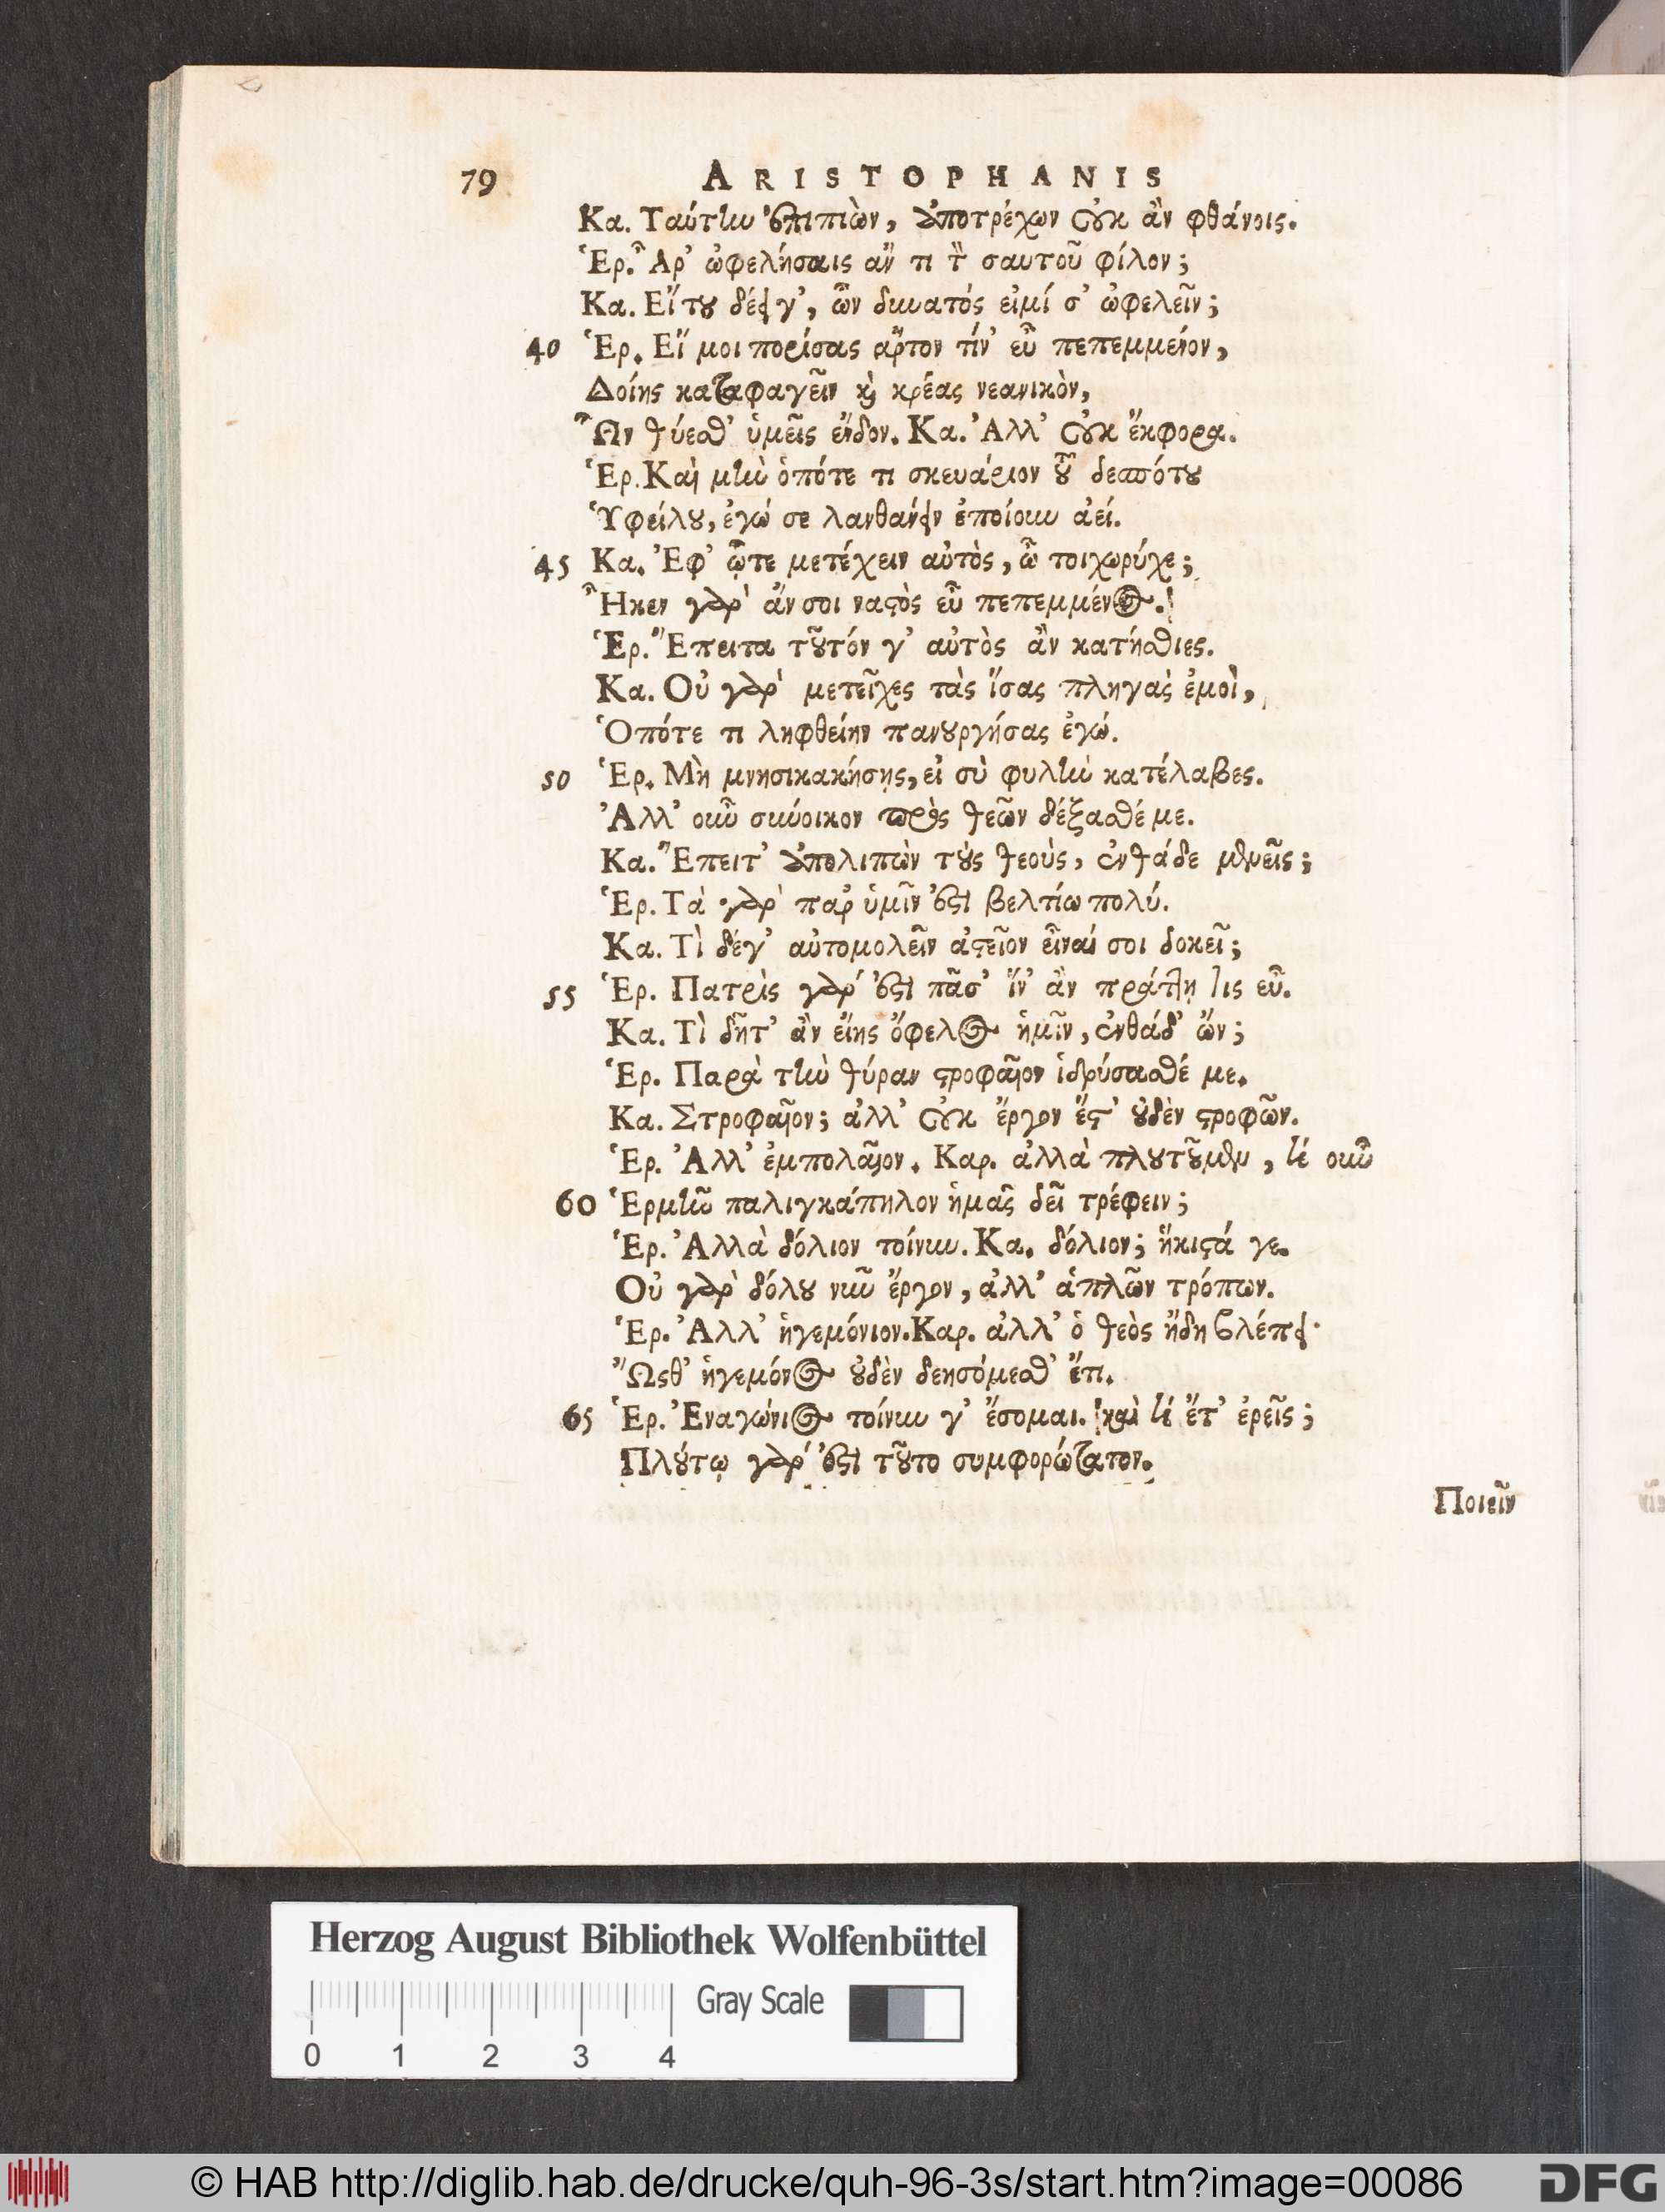 79 ARISTOPHANIS
Κα. Ταύτην ἐπιπιὼν, ἀποτρέχων οὐκ ἂν φθάνοις.
Ἑρ. Ἆρ' ὠφελήσαις ἄν τι τ͂ σαυτοῦ φίλον;
Κα. Εἴ του δέει γ', ὧν δυνατός εἰμί σ' ὠφελεῖν;
40 Ἑρ. Εἴ μοι πορίσας ἄρτον τίν' εὖ πεπεμμένον,
Δοίης καταφαγεῖν καὶ κρέας νεανικὸν,
Ὧν θύεσθ' ὑμεῖς ἔνδον. Κα. Ἀλλ' οὐκ ἔκφορα.
Ἑρ. Καὶ μὴν ὁπότε τι σκευάριον τοῦ δεσπότου
Ὑφείλου, ἐγώ σε λανθάνειν ἐποίουν ἀεί.
45 Κα. Ἐφ' ᾧτε μετέχειν αὐτὸς, ὦ τοιχωρύχε;
Ἧκεν γὰρ ἄν σοι ναστὸς εὖ πεπεμμένος.
Ἑρ. Ἔπειτα τοῦτόν γ' αὐτὸς ἂν κατήσθιες.
Κα. Οὐ γὰρ μετεῖχες τὰς ἴσας πληγὰς ἐμοὶ,
Ὁπότε τι ληφθείην πανουργήσας ἐγώ.
50 Ἑρ. Μὴ μνησικακήσῃς, εἰ σὺ φυλὴν κατέλαβες.
Ἀλλ' οὖν σύνοικον πρὸς θεῶν δέξασθέ με.
Κα. Ἔπειτ' ἀπολιπὼν τοὺς θεοὺς, ἐνθάδε μενεῖς;
Ἑρ. Τὰ γὰρ παρ' ὑμῖν ἐστι βελτίω πολύ.
Κα. Τὶ δέ γ' αὐτομολεῖν ἀστεῖον εἶναί σοι δοκεῖ;
55 Ἑρ. Πατρὶς γάρ ἐστι πᾶσ' ἵν' ἂν πράττῃ τις εὖ.
Κα. Τὶ δῆτ' ἂν εἴης ὄφελος ἡμῖν, ἐνθάδ' ὤν;
Ἑρ. Παρὰ τὴν θύραν στροφαῖον ἱδρύσασθέ με.
Κα. Στροφαῖον; ἀλλ' οὐκ ἔργον ἔστ' οὐδὲν στροφῶν.
Ἑρ. Ἀλλ' ἐμπολαῖον. Καρ. ἀλλὰ πλουτοῦμεν, τί οὖν
60 Ἑρμῆν παλιγκάπηλον ἡμᾶς δεῖ τρέφειν;
Ἑρ. Ἀλλὰ δόλιον τοίνυν. Κα. δόλιον; ἥκιστά γε.
Οὐ γὰρ δόλου νῦν ἔργον, ἀλλ' ἁπλῶν τρόπων.
Ἑρ. Ἀλλ' ἡγεμόνιον. Καρ. ἀλλ' ὁ θεὸς ἤδη βλέπει·
Ὥςθ' ἡγεμόνος οὐδὲν δεησόμεσθ' ἔτι.
65 Ἑρ. Ἐναγώνιος τοίνυν γ' ἔσομαι. καὶ τί ἔτ' ἐρεῖς;
Πλούτῳ γάρ ἐστι τοῦτο συμφορώτατον.
Ποιεῖν
Herzog August Bibliothek Wolfenbüttel
Gray Scale
0 1 2 3 4
© HAB http://diglib.hab.de/drucke/quh-96-3s/start.htm?image=00086
DFG